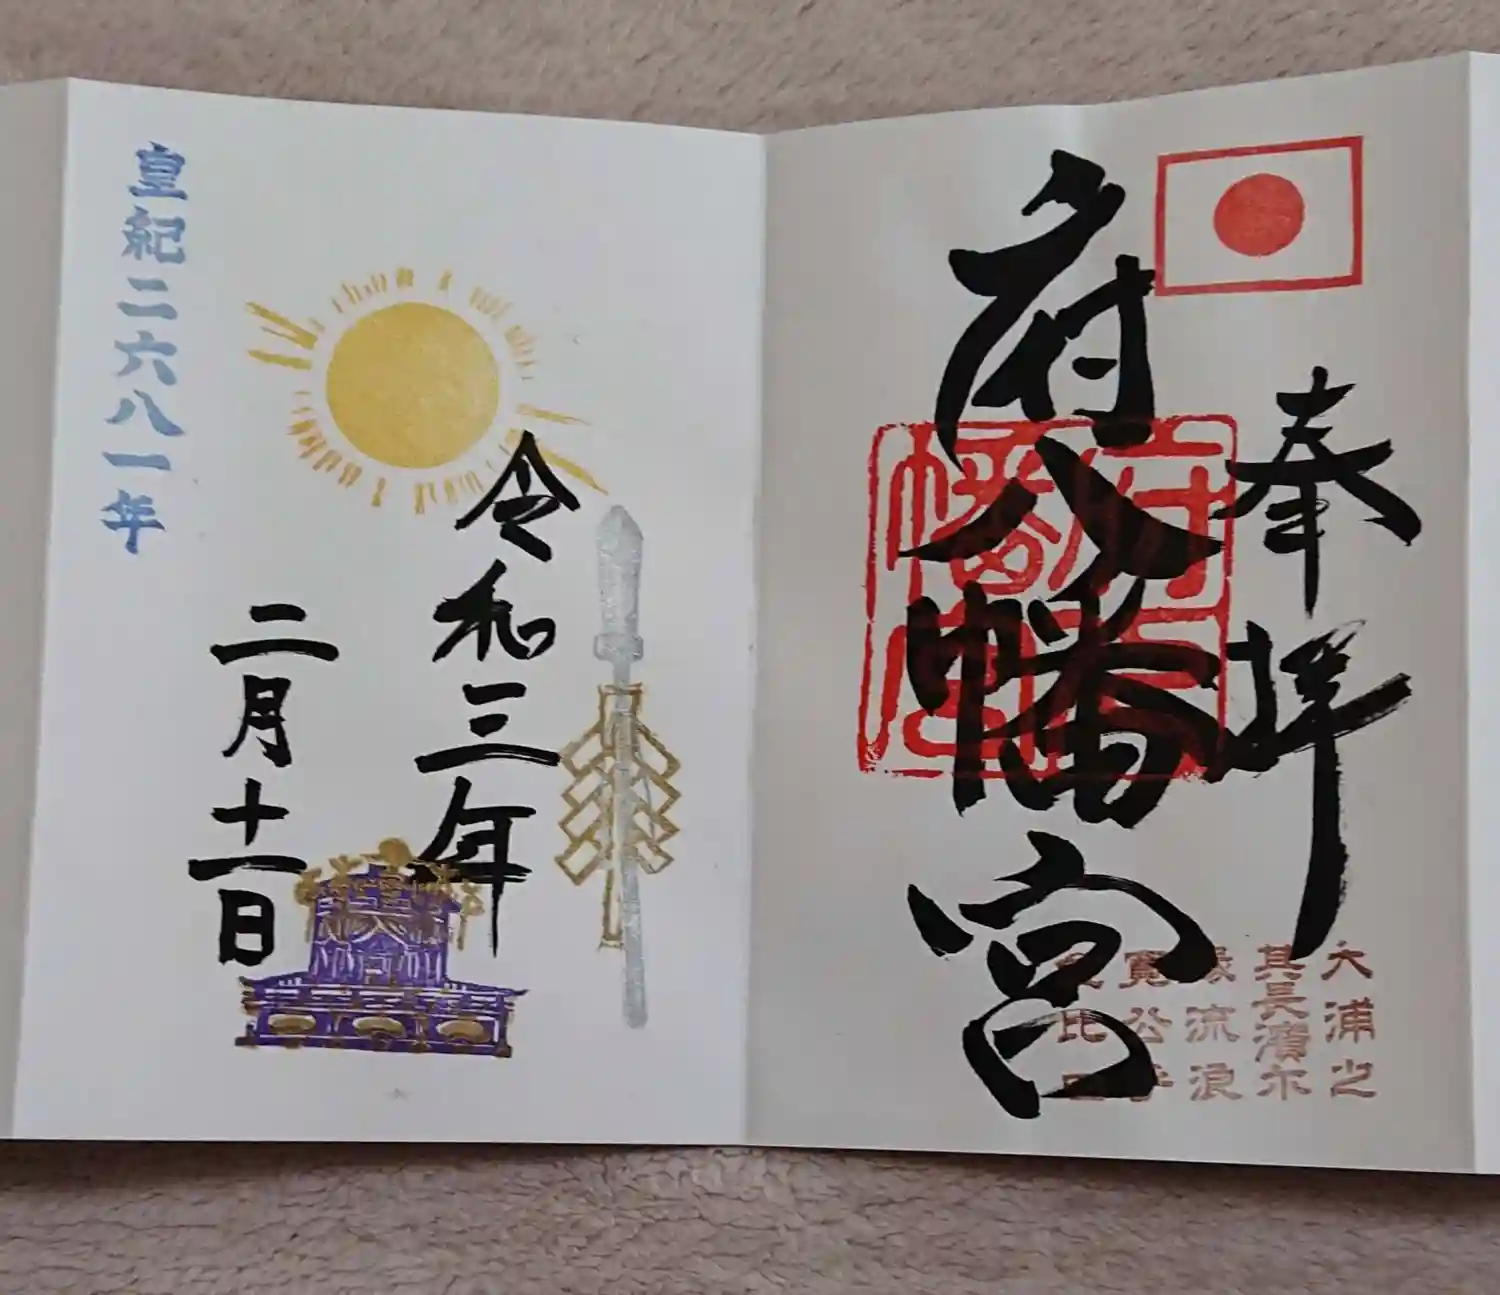 奉拝
府八幡宮
府八幡宮
大浦之
其長濱尓
縁流浪
寛公乎
比日
令和三年
二月十一日
皇紀二六八一年